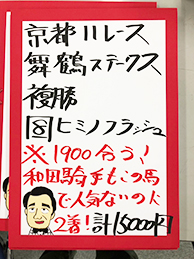 京都11レース
舞鶴ステークス
複勝
8 ヒミノフラッシュ
※1900合う!
和田騎手もこの馬
で人気ないのに
2着!計15000円